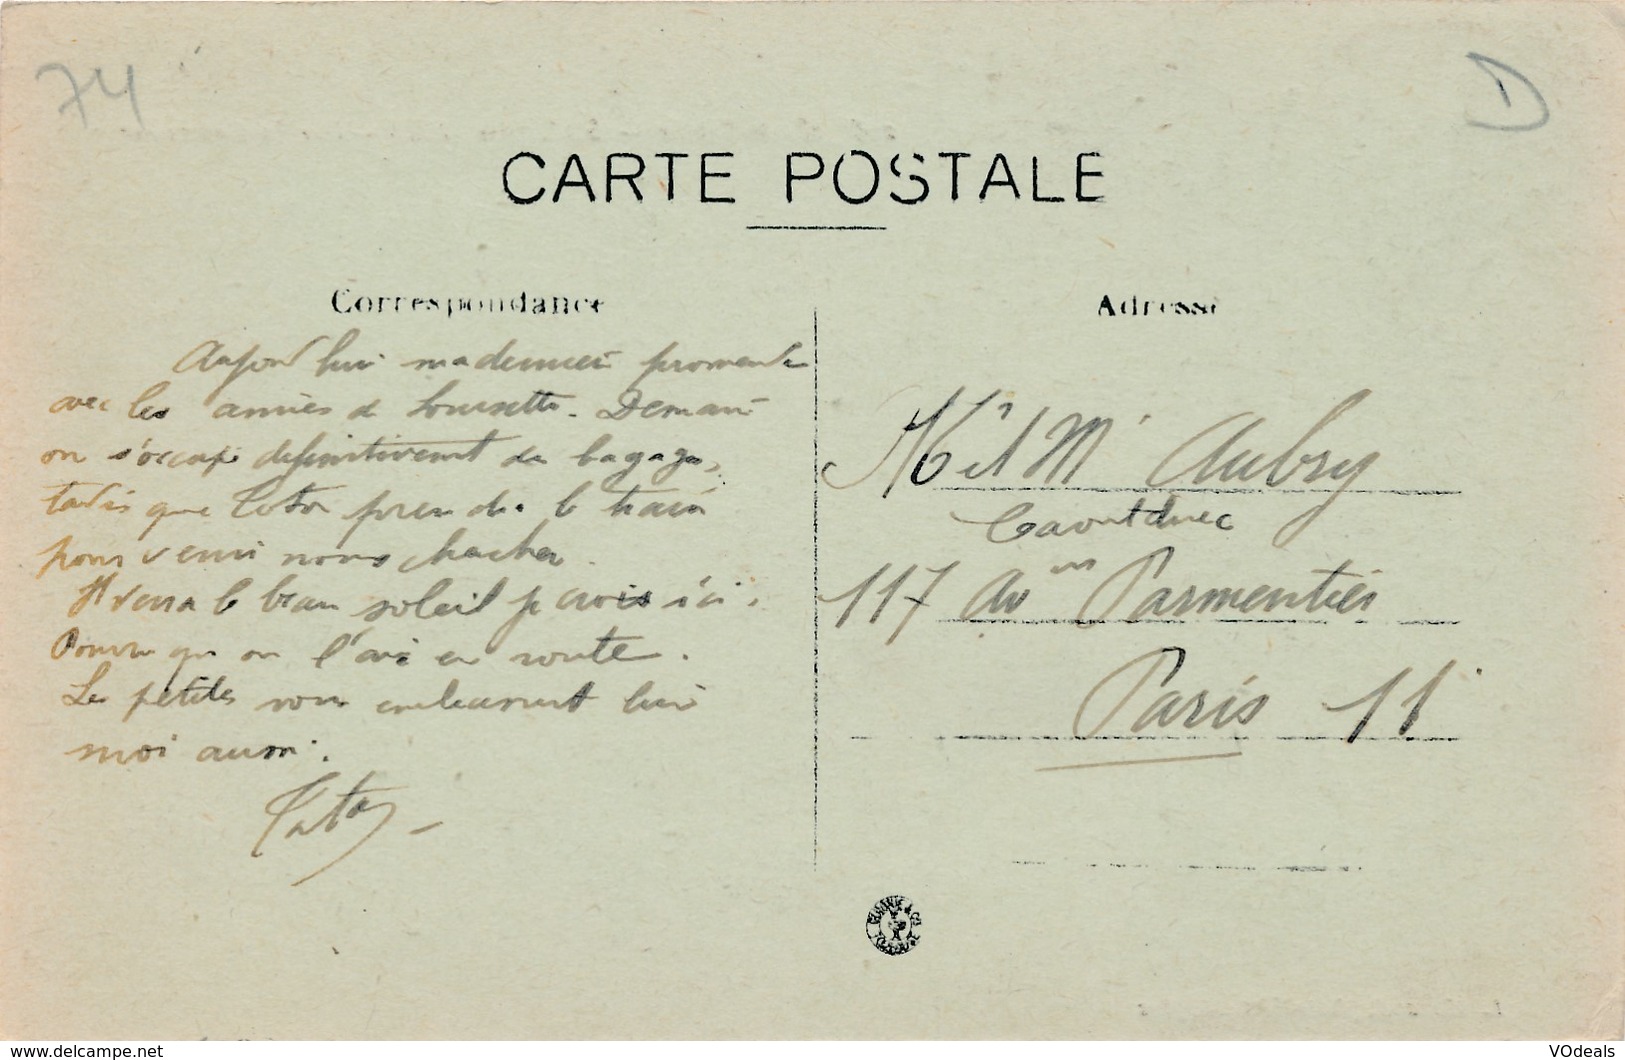 74
D
CARTE POSTALE
Correspondance
Adresse
Aujourd'hui dernière promenade
avec les amies de Lousette. Demain
on s'occupe définitivement des bagages,
tandis que Totor prendra le train
pour venir nous chercher.
Il verra le beau soleil je crois ici.
Pourvu qu'on l'ait en route.
Les petites vous embrassent bien
moi aussi.
Totor
Mr et Mme Aubry
Caoutchouc
117 Av Parmentier
Paris 11
LABOUCHE & Co
TOULOUSE
www.delcampe.net
VOdeals